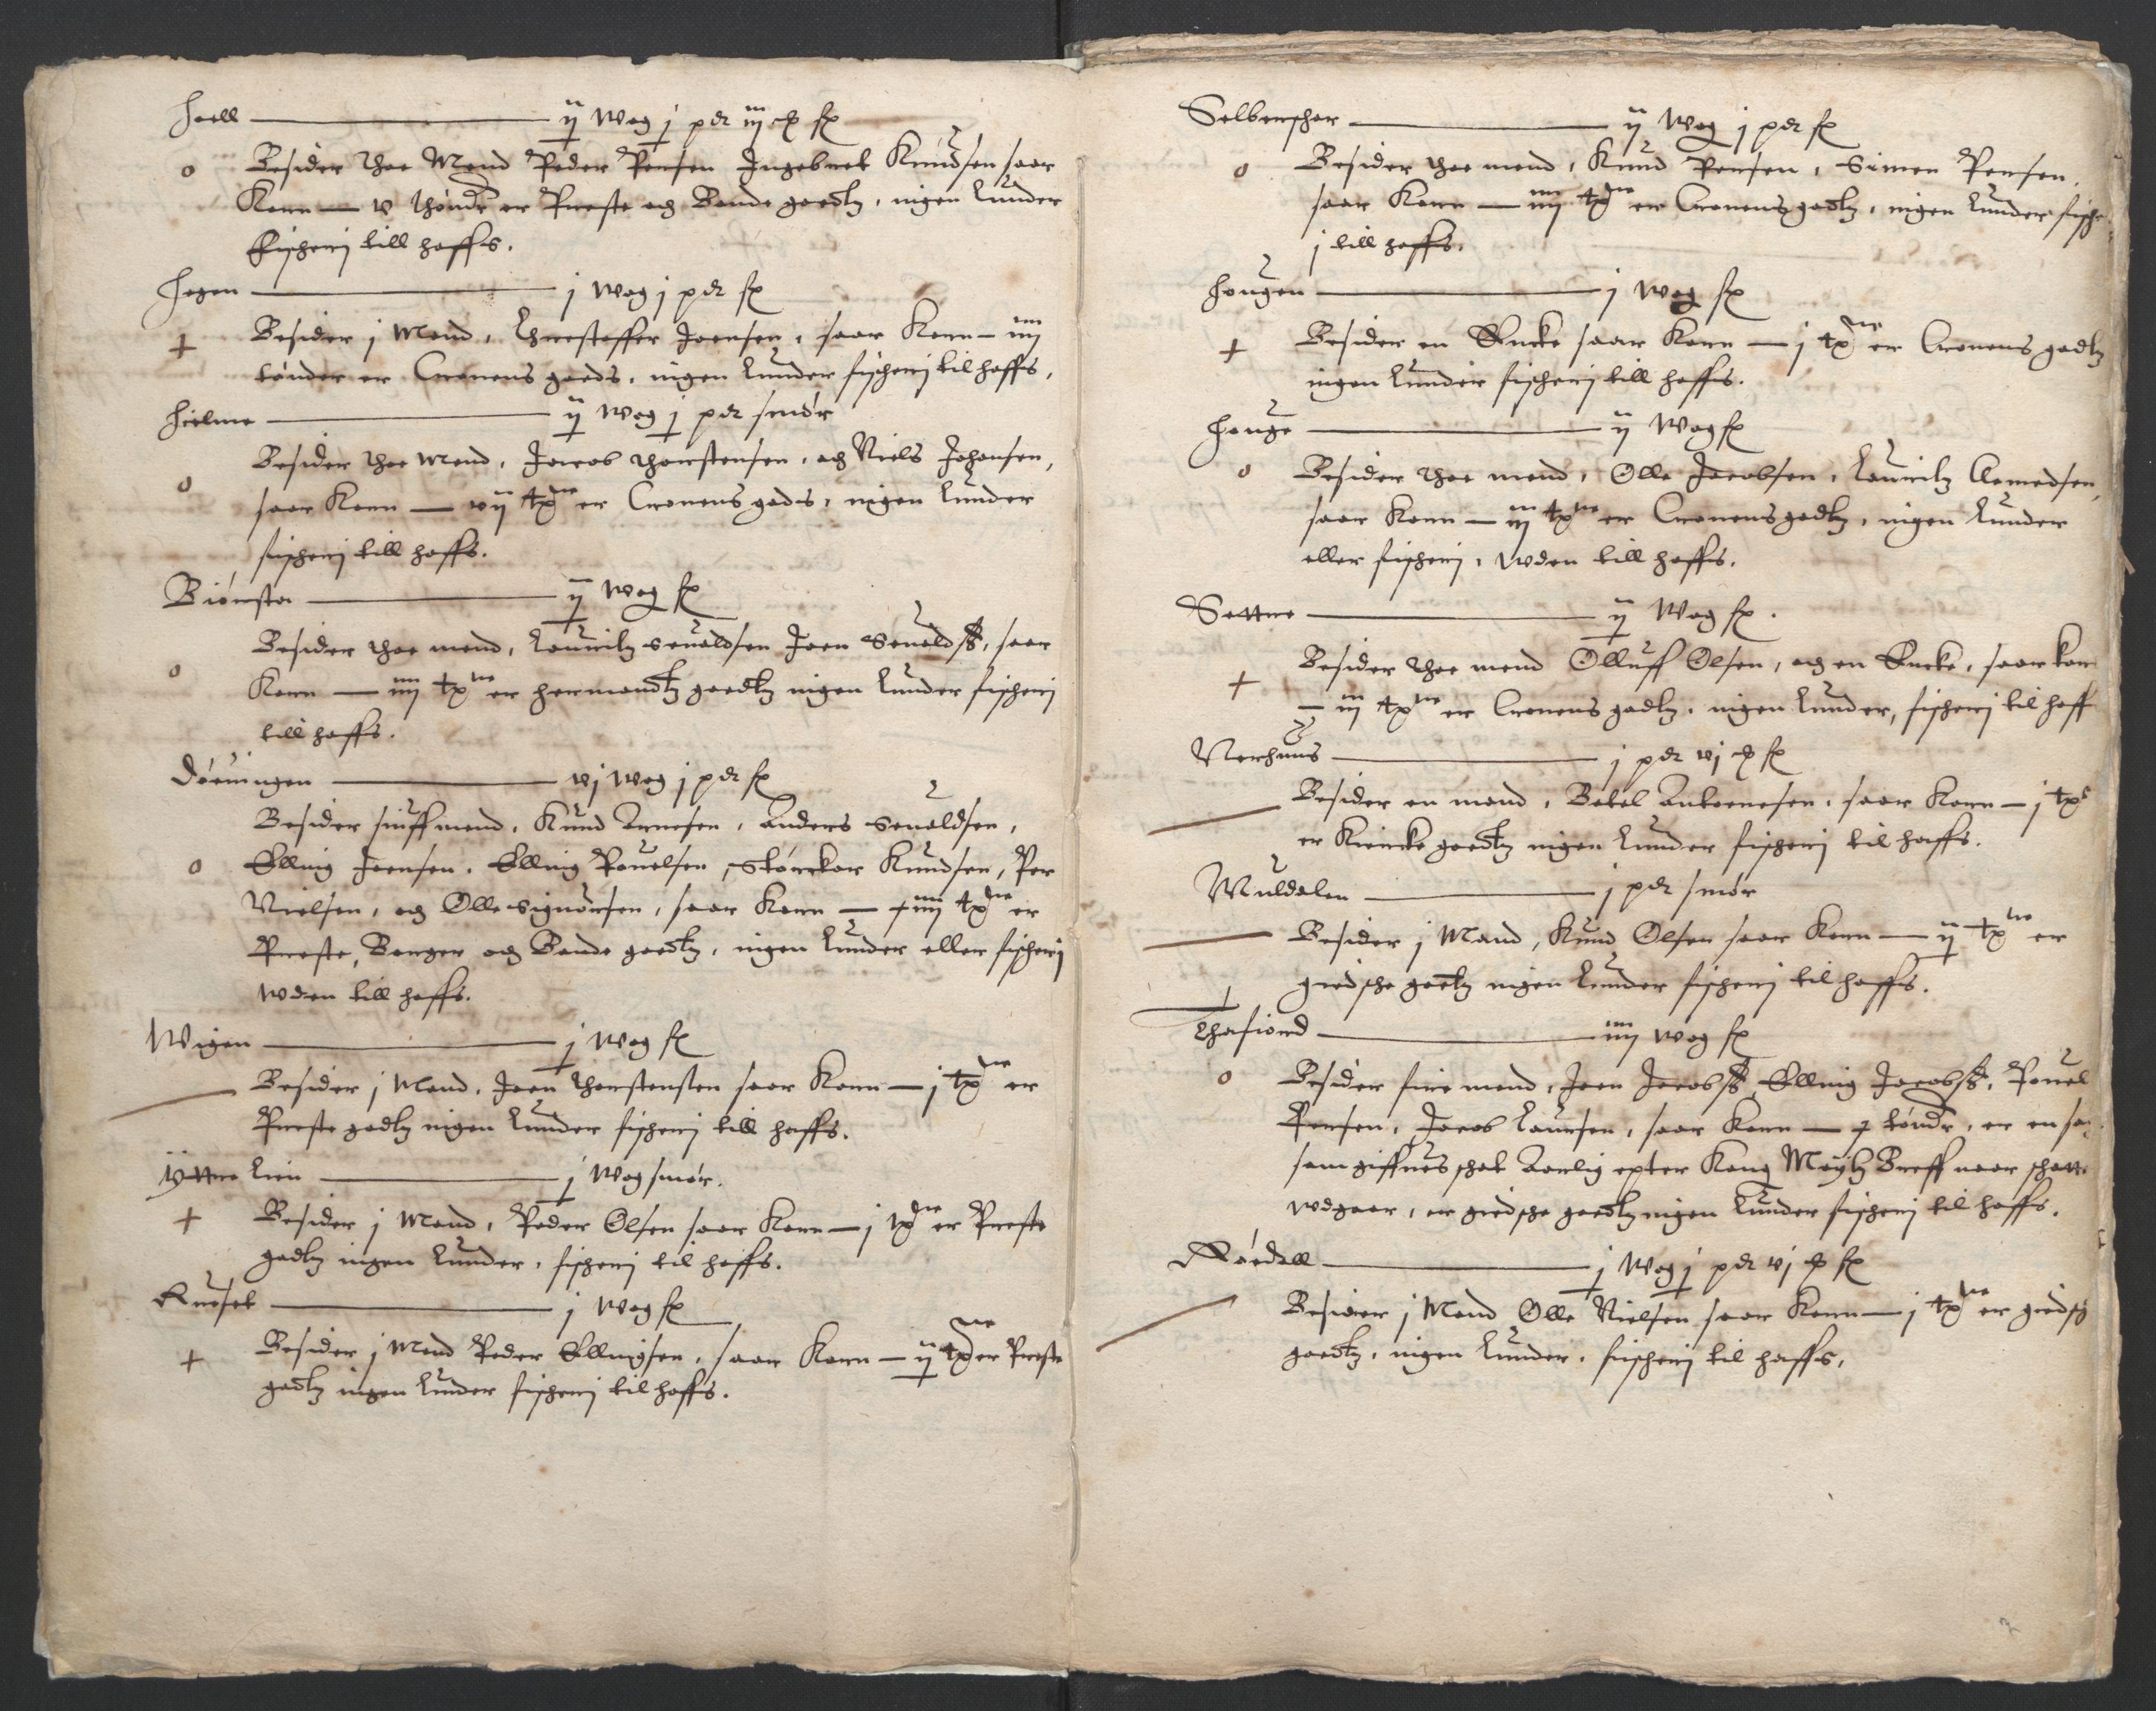 Hoell — ij Wog j pdt iij ℔ sp
o Besider thoe Mend Peder Persen Ingebret Knudsen saar
Korn — v thønder er Preste och Bonde goedtz, ingen Lunder
Fischerj till haffs.
Hegen — j Wog j pdt sp
+ Besider j Mend, Christoffer Joensen, saar Korn — iiij
tønder er Cronens goeds, ingen Lunder fischerj til haffs,
Hielme — ij Wog j pdt smør
o Besider thoe mend, Jacob thorstensen, och Niels Johansen,
saar Korn — vij tønder er Cronens gods, ingen Lunder
fischerj till haffs.
Biørsta — ij Wog sp
o Besider thoe mend, Lauritz Seualdsen Joen Seualdß, saar
Korn — iiij tøner er hermandtz goedtz ingen Lunder fischerj
till haffs.
Døruingen — vj Wog j pdt sp
Besider siuff mend, Knud Arnesen, Anders Seualdsen,
o Elling Joensen, Elling Pouelsen, Størckar Knudsen, Per
Nielsen, och Olle Signørsen, saar Korn — xiiij tøner er
Preste, Borger och Bonde goedtz, ingen Lunder eller fischerij
wden till haffs.
Wigen — j Wog sp
Besider j Mand, Joen thorstensten saar Korn — j tøne er
Preste godtz ingen Lunder fischerj till haffs.
Yttre Lien — j Wog smør.
+ Besider j Mand, Peder Olsen saar Korn — j tøne er Preste
godtz ingen Lunder, fischerj til haffs.
Ruset — j Wog sp
+ Besider j Mend Peder Ellingsen, saar Korn — ij tøne er Preste
godtz ingen Lunder fischerj til haffs.
Selberschar — ij Wog j pdt sp
o Besider thoe mend, Knud Persen, Simen Persen,
saar Korn — iiij tøne er Cronens godtz, ingen Lunder fische
j till haffs.
Hougen — j Wog sp
+ Besider en Encke saar Korn — j tøne er Cronens godtz
ingen Lunder fischerj till haffs.
Houge — ij Wog sp
o Besider thoe mend, Olle Jacobsen, Lauritz Clemedsen,
saar Korn — iij tøne er Cronens godtz, ingen Lunder
eller fischerj, wden till haffs.
Settre — ij Wog sp.
+ Besider thoe mend Olluff Olsen, och en Encke, saar kor
— iij tøne er Cronens godtz, ingen Lunder, fischerj til haff
Norhuus — j pdt vj ℔ sp
Besider en mand, Botel Antonesen, saar Korn — j tøe
er Kircke goedtz ingen Lunder fischerj til haffs.
Muldalen — j pdt smør
Besider j Mand, Knud Olsen saar Korn — ij tøne er
giedsche goetz ingen Lunder fischerj til haffs.
Thafiord — iiij Wog sp
o Besider fire mend, Joen Jacobß, Elling Jacobß, Pouel
Persen, Jacob Laursen, saar Korn — x tønder, er en
som giffues schat Aarlig epter Kong Maytz Breff naar schatte
wdgaar, er giedsche goedtz ingen Lunder fischerj til haffs.
Rødall — j Wog j pdt vj ℔ sp
Besider j Mand Olle Nielsen saar Korn — j tøne er giedsch
goedtz, ingen Lunder, fischerj til haffs,